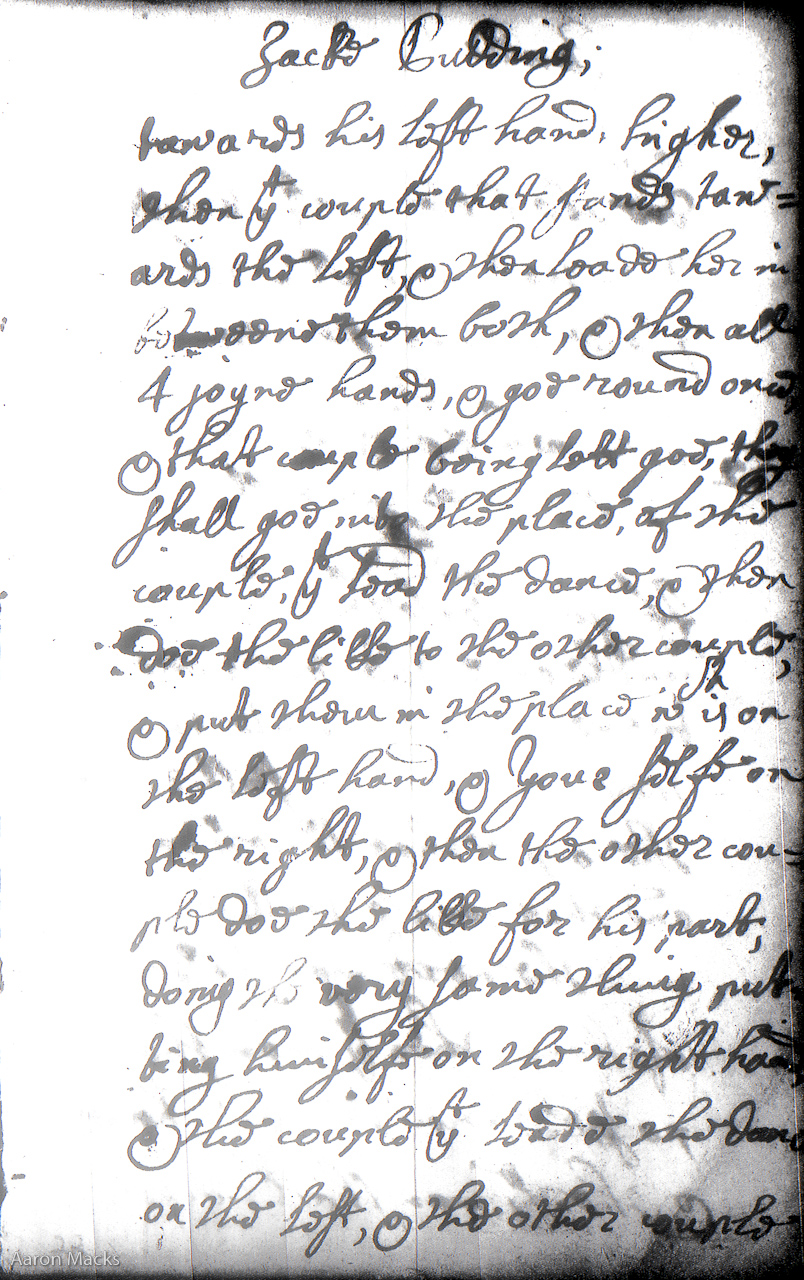 Jacke Pudding;
towards his left hand, higher,
then yt couple that stands tow=
ards the left, & then leade her in
betweene them both, & then all
4 joyne hands, & goe round once,
& that couple being left goe, they
shall goe into the place, of the
couple, yt lead the dance, & then
doe the like to the other couple,
& put them in the place wch is on
the left hand, & your selfe on
the right, & then the other cou=
ple doe the like for his part,
doing the very same thing put
ting himselfe on the right hand,
& the couple yt leade the dance
on the left, & the other couple
Aaron Macks